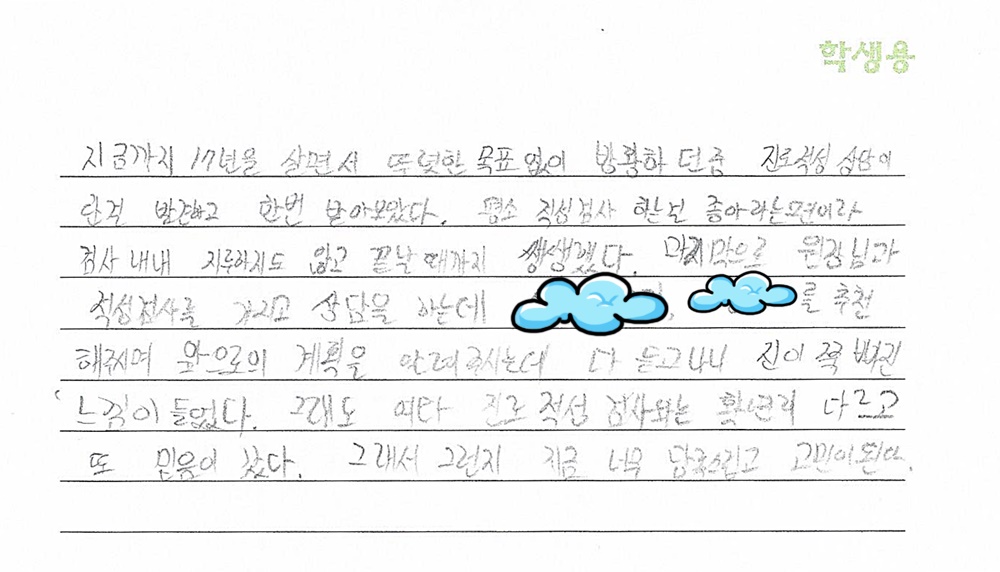 학생용
지금까지 17년을 살면서 뚜렷한 목표 없이 방황하던중 진로적성 상담이
란걸 발견하고 한번 받아보았다. 평소 적성검사 하는걸 좋아라하는편이라
검사 내내 지루하지도 않고 끝날 때까지 쌩쌩했다. 마지막으로 원장님과
적성검사를 가지고 상담을 하는데 를 추천
해주시며 앞으로의 계획을 알려주시는데 다 듣고나니 진이 쭉 빠진
느낌이 들었다. 그래도 여타 진로 적성 검사와는 확연히 다르고
또 믿음이 갔다. 그래서 그런지 지금 너무 당혹스럽고 고민이된다.